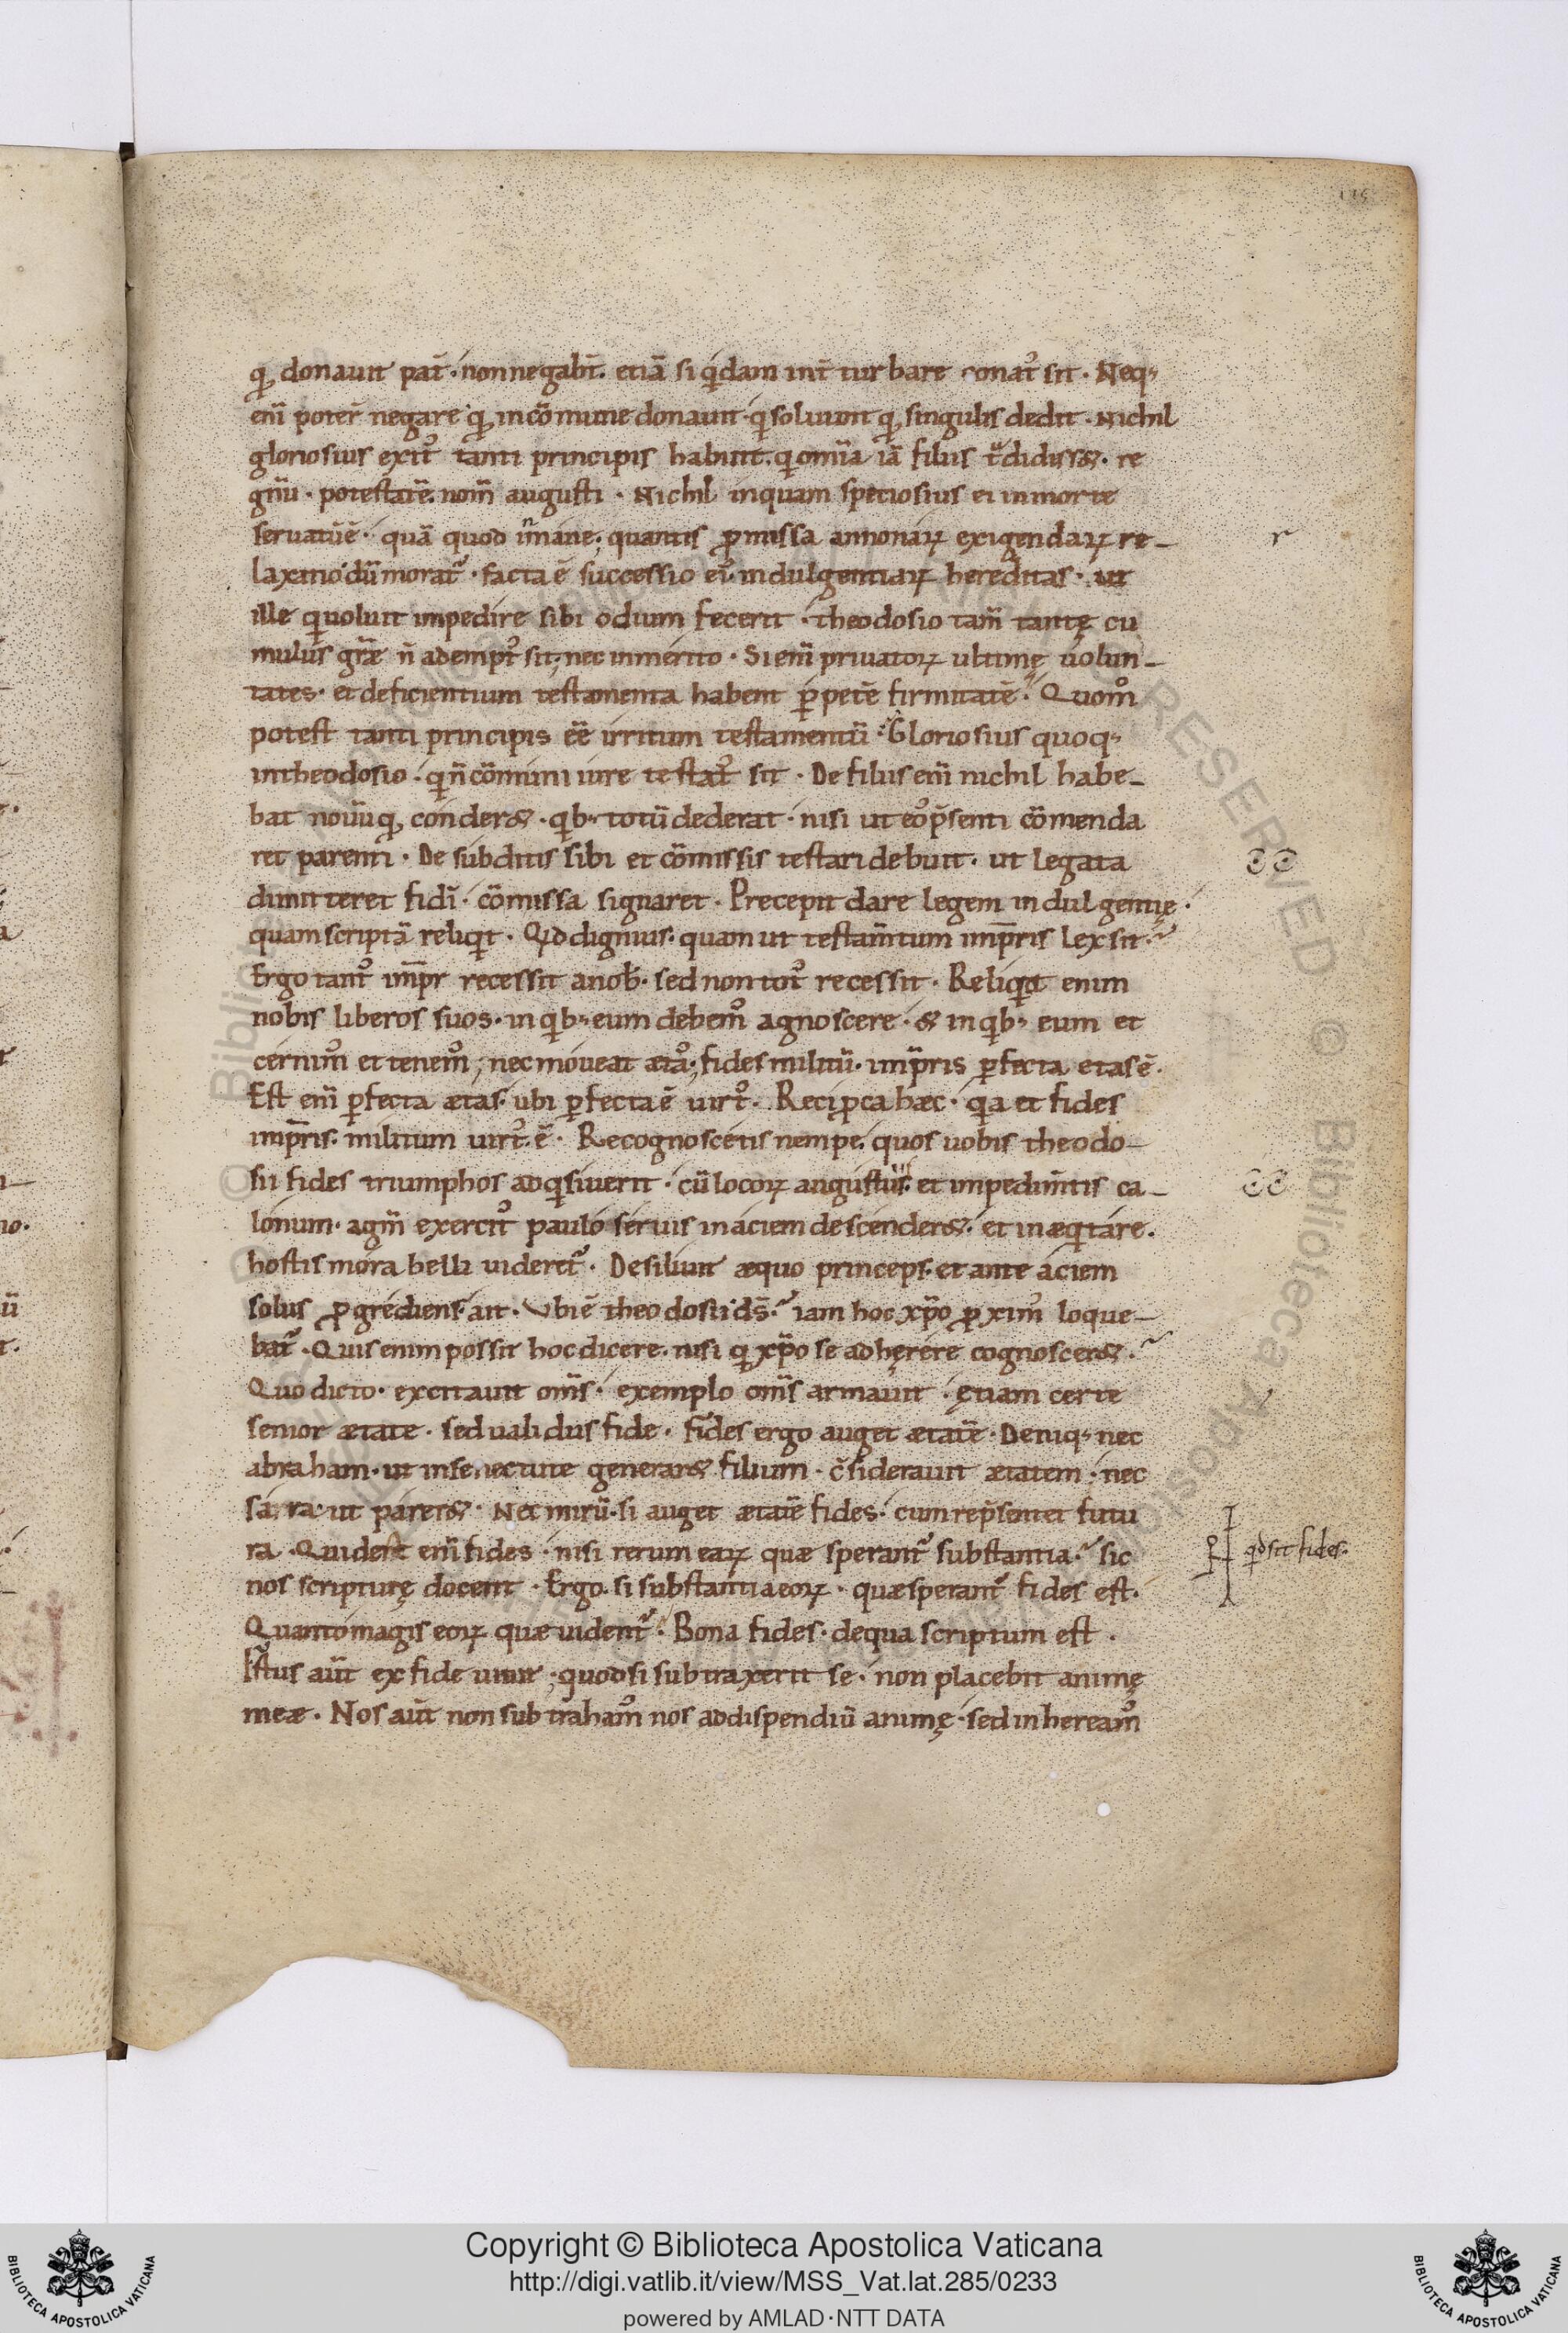 115
qᵢ donauit pat̄. non negabt̄. etiā si qͥdam int̄ turbare conatꝰ sit. Neq;
eni̅ poter̄ negare qᵢ in cōmune donauit. qᵢ soluunt qᵢ singulis dedit. Nichil
gloriosius exitꝰ tanti principis habuit. qᵢ omnia iā filiis t̾didiss&. re
gnū. potestatē. nom̄ augusti. Nichil inquam speciosius ei in morte
seruatū ē. quā quod īmane; quantis ꝓmissa annonaꝝ exigendaꝝ re-
laxatio dū morat̾. facta ē successio eiꝰ. indulgentiaꝝ hereditas. ut
ille qᵢ uoluit impedire sibi odium fecerit. theodosio tam̄ tantę cu
mulus grǣ n̄ ademptꝰ sit; nec inmerito. Si eni̅ priuatoꝝ ultimę uolun-
tates. et deficientium testamenta habent ꝑpetē firmitatē. Quom̊
potest tanti principis ēē irritum testamentū. Gloriosius quoq;
in theodosio. qᵢ n̄ cōmuni iure testatꝰ sit. De filiis eni̅ nichil habe-
bat nouū qᵢ conder&. qᵢb; totū dederat. nisi ut eos p̄senti cōmenda
ret parenti. De subditis sibi et cōmissis testari debuit. ut legata
dimitteret fidī. cōmissa signaret. Precepit dare legem indulgentię.
quam scriptā reliqͥt. Qͥd dignius. quam ut testam̄tum imp̄ris lex sit.
Ergo tantꝰ imp̄r recessit a nob̄. sed non totꝰ recessit. Reliqͥt enim
nobis liberos suos. in qᵢb; eum debemꝰ agnoscere. & in qᵢb; eum et
cernimꝰ et tenemꝰ; nec moueat ætas; fides militū. imp̄ris ꝑfecta etas ē.
Est eni̅ ꝑfecta ætas. ubi ꝑfecta ē uirtꝰ. Reciꝓca hæc. qͥa et fides
imp̄ris. militum uirtꝰ ē. Recognoscetis nempe. quos uobis theodo-
sii fides triumphos adqͥsiuerit. cū locoꝝ angustiis. et impedim̄tis ca-
lonum. agm̄ exercitꝰ paulo seruis in aciem descender&. et inæqͥtare.
hostis mora belli uideret̾. Desiliuit æquo princeps. et ante aciem
solus ꝓgrediens. ait. Vbi ē theodosii d̄s. iam hoc xp̄o ꝓximꝰ loque-
bat̾. Quis enim possit hoc dicere. nisi qᵢ xp̄o se adhęrere cognoscer&.
Quo dicto. excitauit om̄s. exemplo om̄s armauit. ętiam certe
senior ætate. sed ualidus fide. fides ergo auget ætatē. Deniq; nec
abraham. ut in senectute generar& filium. c̄siderauit ætatem. nec
sarra. ut parer&. Nec mirū. si auget ætatē fides. cum rep̄sentet futu
ra. Quid est eni̅ fides. nisi rerum eaꝝ quæ sperant̾ substantia. sic
nos scripturę docent. Ergo si substantia eoꝝ. quæ sperant̾ fides est.
Quanto magis eoꝝ quæ uident̾. Bona fides. de qua scriptum est.
Istus aūt ex fide uiuit; quod si subtraxerit se. non placebit animę
meæ. Nos aūt non subtrahamꝰ nos ad dispendiū animę. sed inhereamꝰ
r
qͥd sit fides.
Copyright © Biblioteca Apostolica Vaticana
http://digi.vatlib.it/view/MSS_Vat.lat.285/0233
powered by AMLAD·NTT DATA
BIBLIOTECA APOSTOLICA VATICANA
BIBLIOTECA APOSTOLICA VATICANA